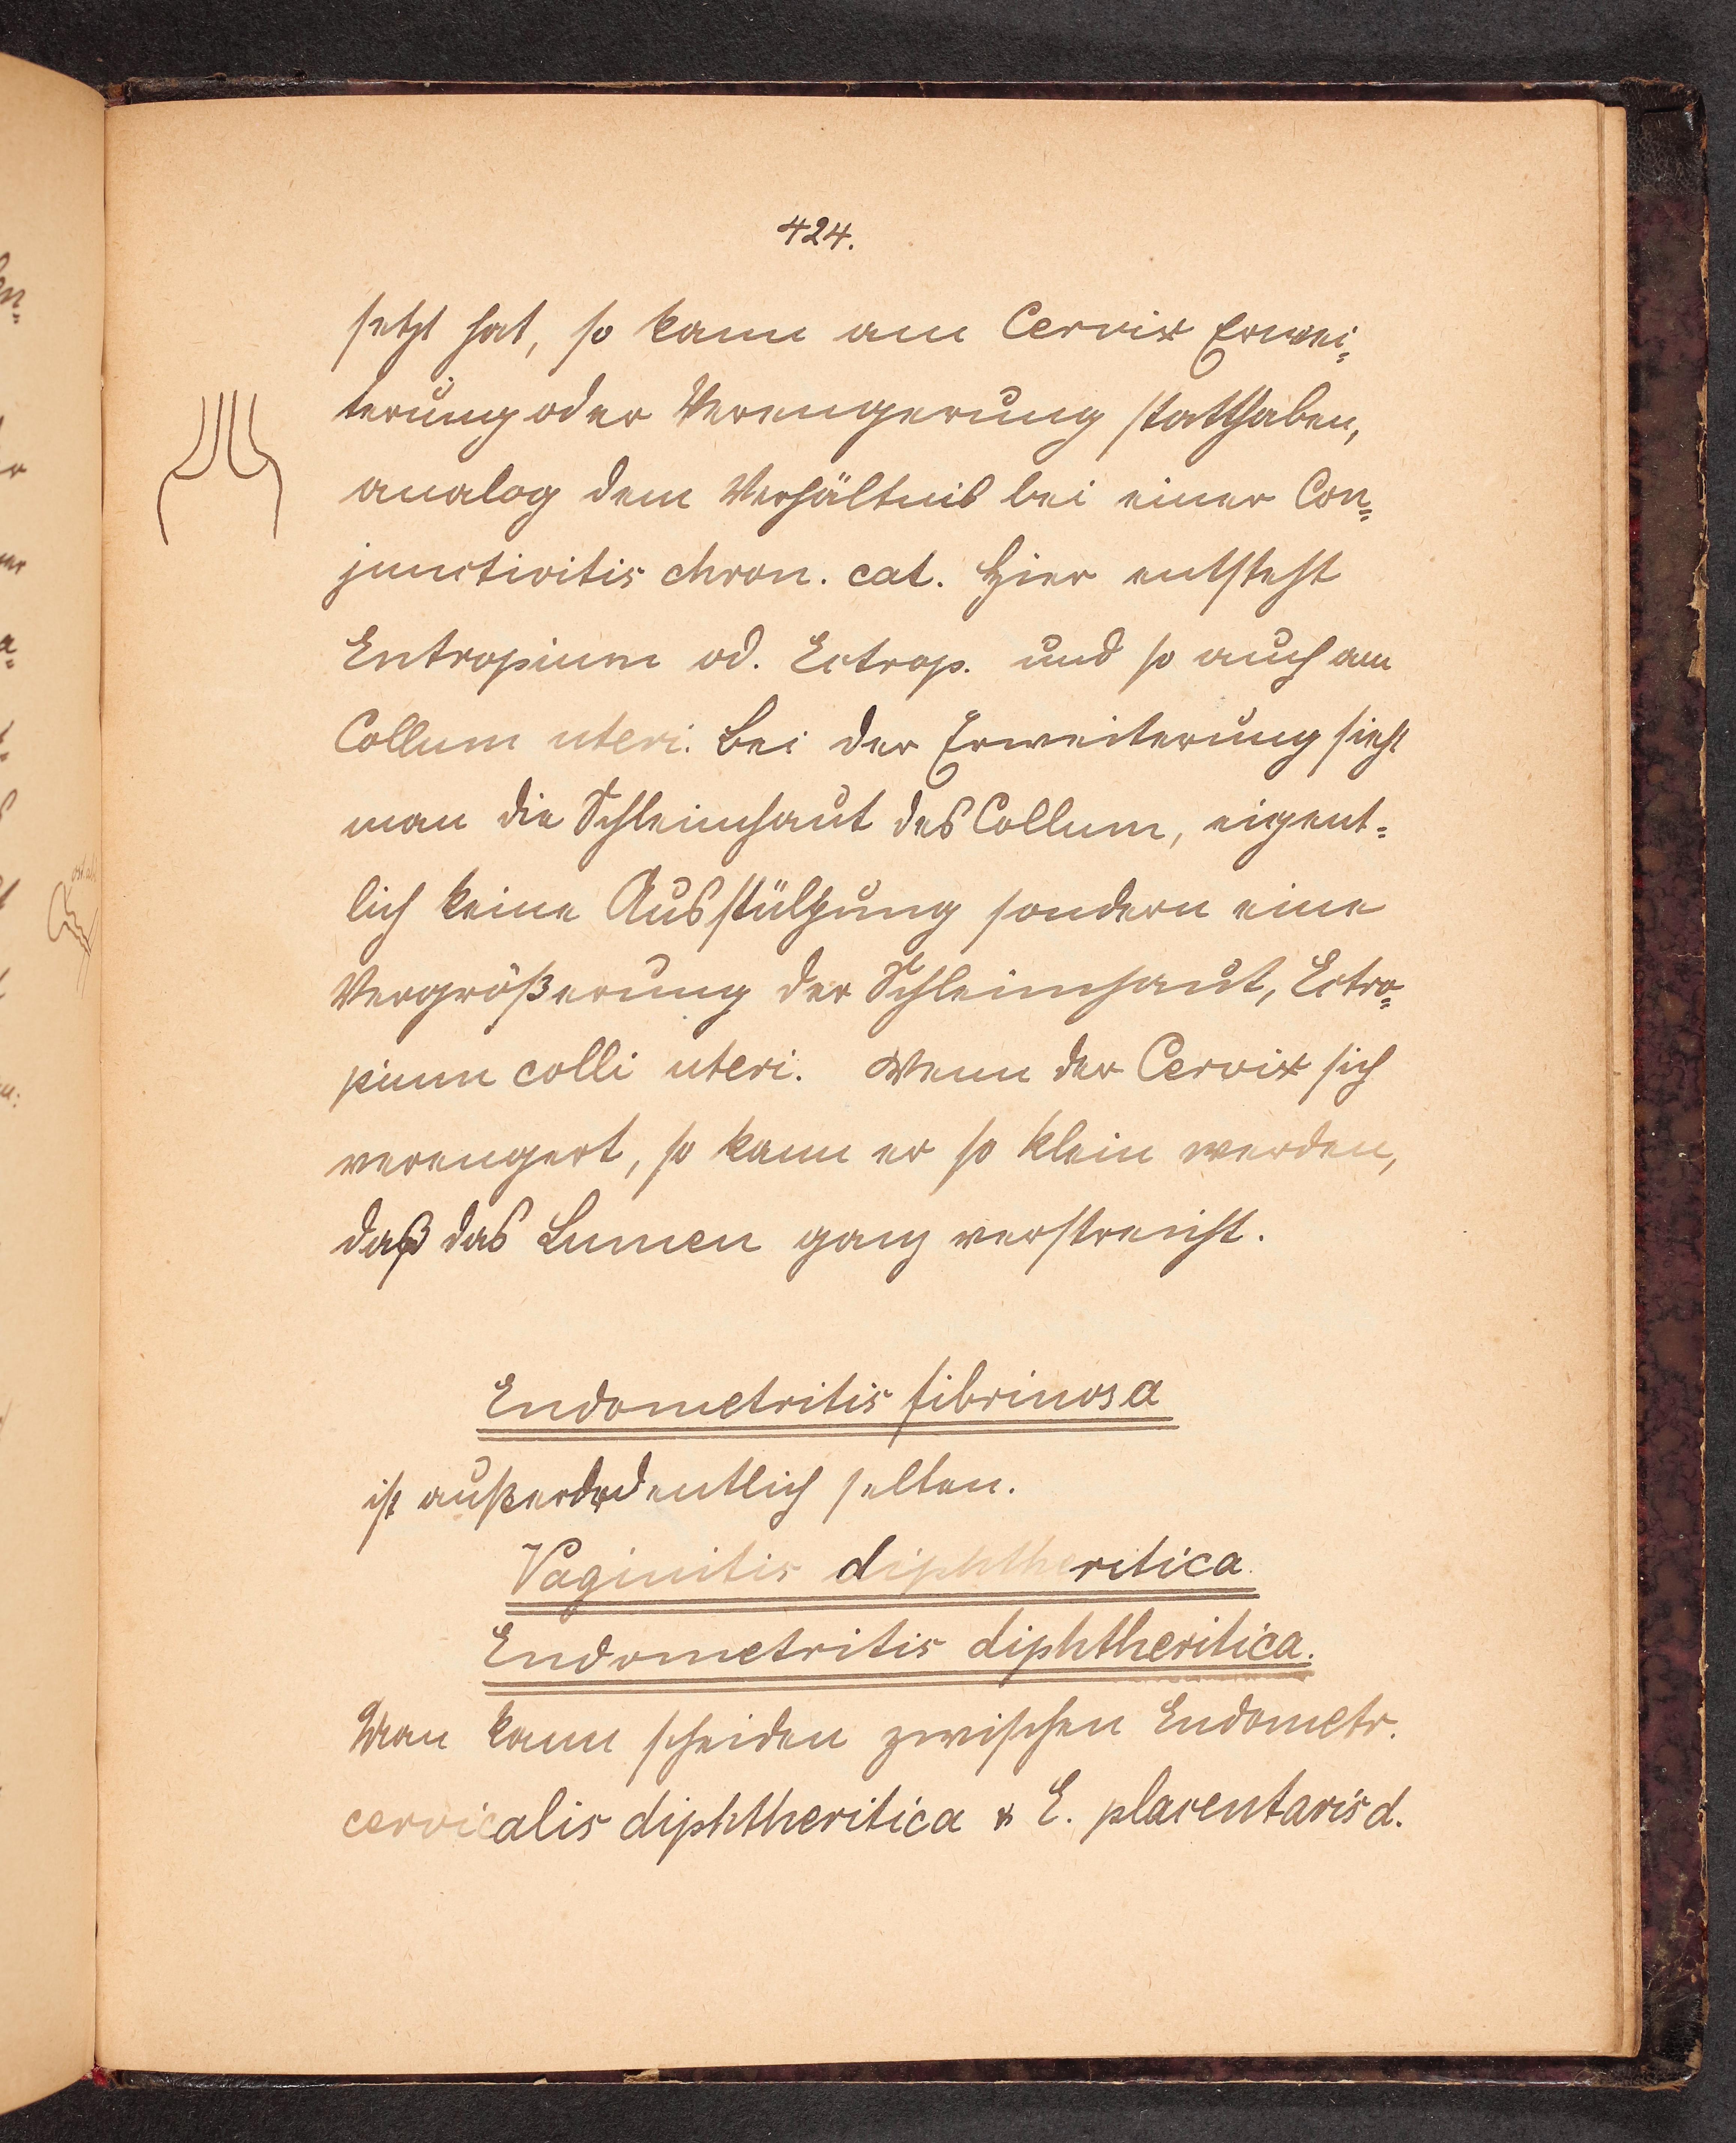 424.
setzt hat, so kann am Cervix Erwei-
terung oder Verengerung statthaben,
analog dem Verhältnis bei einer Con-
junctivitis chron. cat. Hier entsteht
Entropium od. Ectrop. und so auch am
Collum uteri. Bei der Erweiterung sieht
man die Schleimhaut des Collum, eigent-
lich keine Ausstülpung sondern eine
Vergrößerung der Schleimhaut, Ectro-
pium colli uteri. Wenn der Cervix sich
verengert, so kann er so klein werden,
daß das Lumen ganz verstreicht.
Endometritis fibrinosa
ist außerordentlich selten.
Vaginitis diphtheritica.
Endometritis diphtheritica.
Man kann scheiden zwischen Endometr.
cervicalis diphtheritica & E. placentaris d.